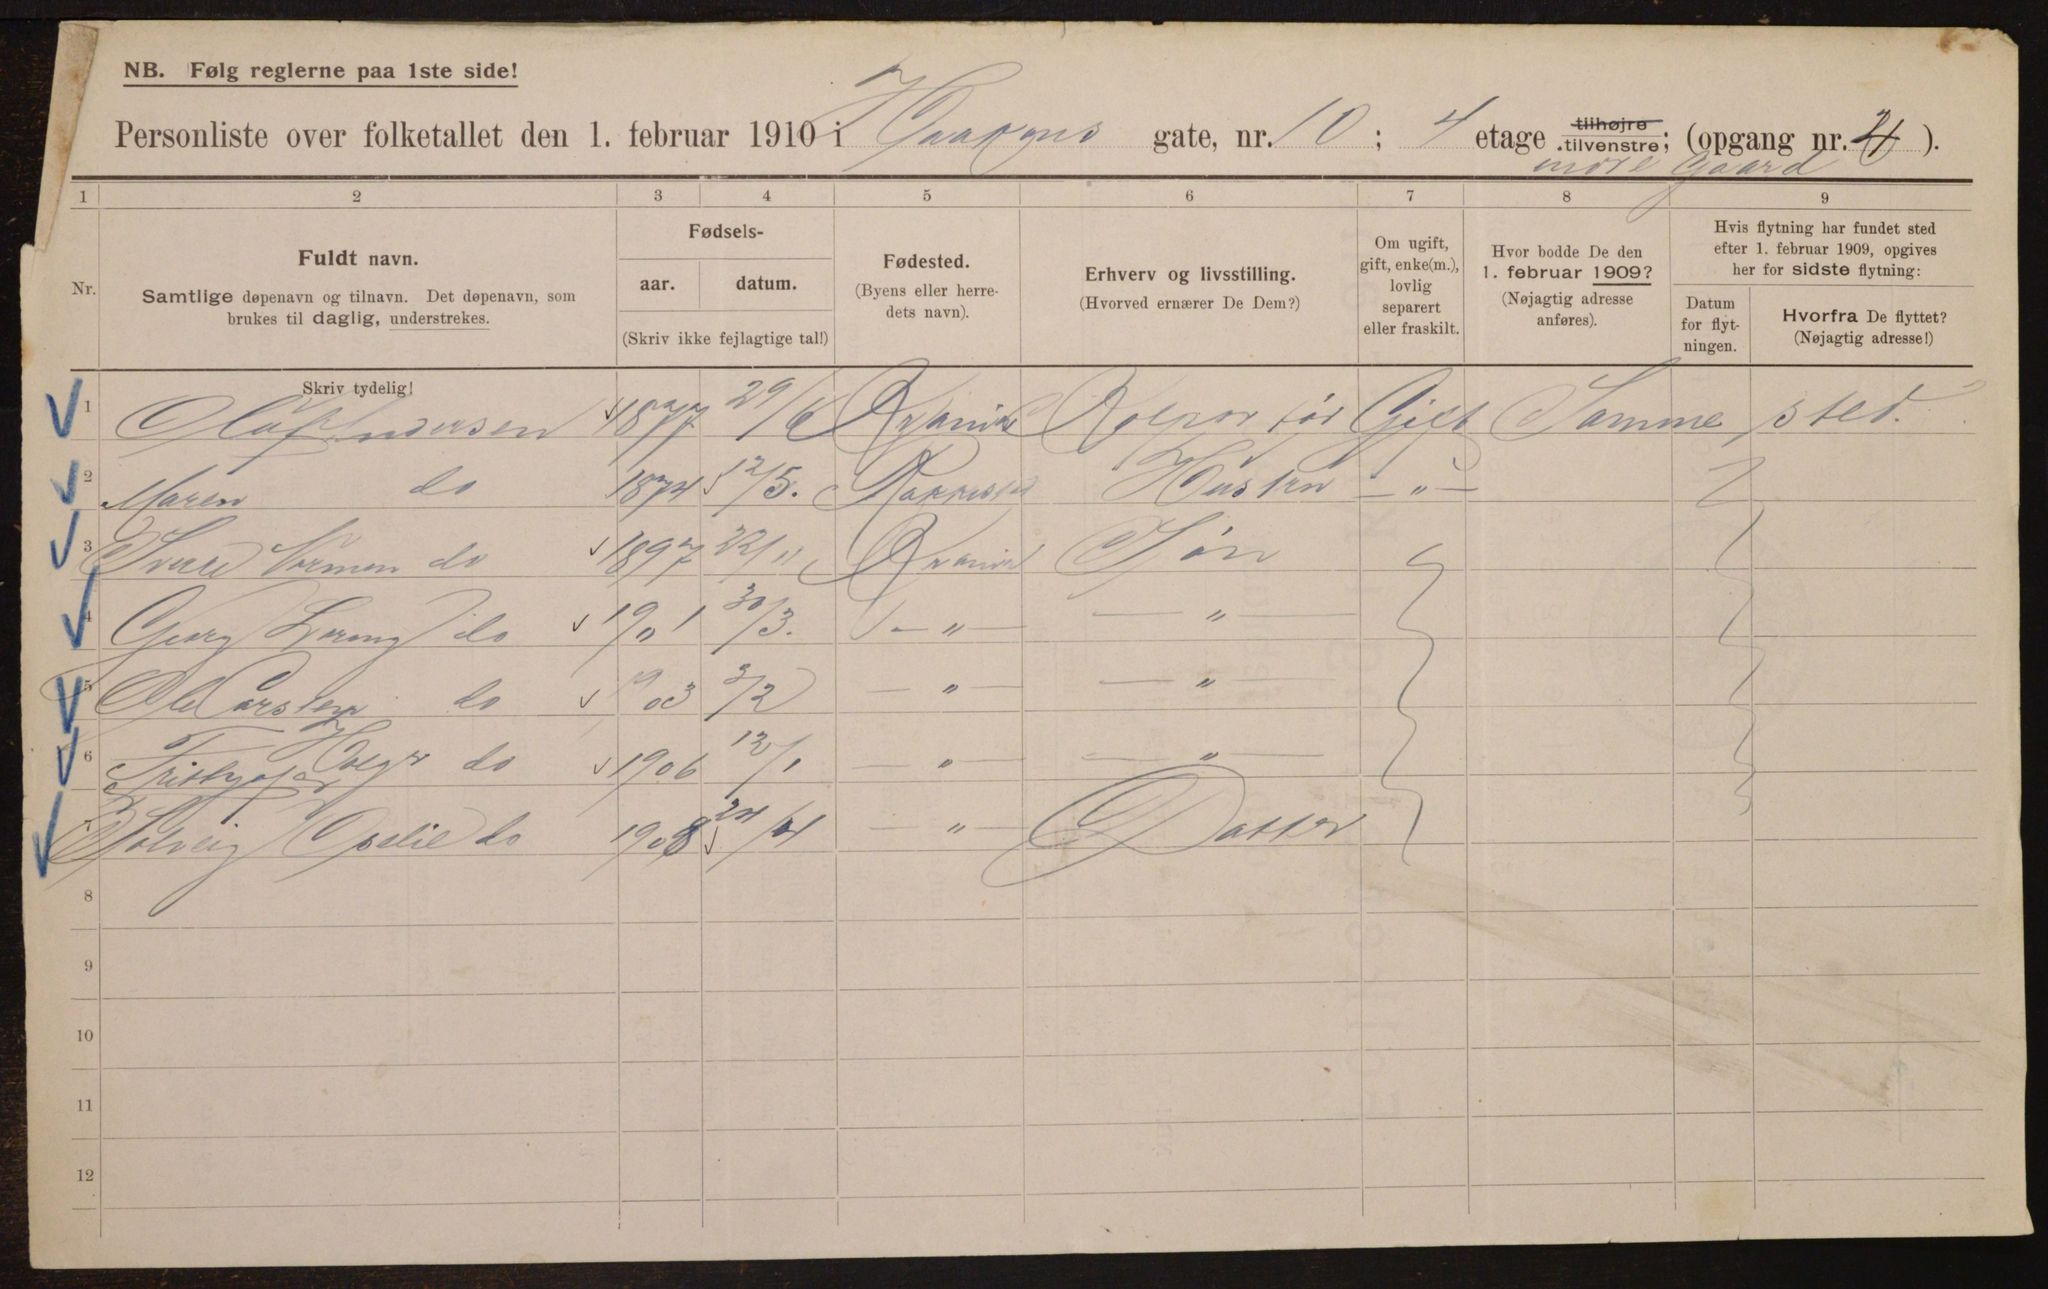 NB. Følg reglerne paa 1ste side!
Personliste over folketallet den 1. februar 1910 i Haakons gate, nr. 10; 4 etage tilhøjre tilvenstre; (opgang nr. 4).
indre Gaard
1 2 3 4 5 6 7 8 9
Nr.
Fuldt navn.
Samtlige døpenavn og tilnavn. Det døpenavn, som
brukes til daglig, understrekes.
Fødsels-
aar. datum.
(Skriv ikke fejlagtige tal!)
Fødested.
(Byens eller herre-
dets navn).
Erhverv og livsstilling.
(Hvorved ernærer De Dem?)
Om ugift,
gift, enke(m.),
lovlig
separert
eller fraskilt.
Hvor bodde De den
1. februar 1909?
(Nøjagtig adresse
anføres).
Hvis flytning har fundet sted
efter 1. februar 1909, opgives
her for sidste flytning:
Datum
for flyt-
ningen.
Hvorfra De flyttet?
(Nøjagtig adresse!)
Skriv tydelig!
1 Olaf Andersen 1877 29/6 Kristiania Kolportør Gift Samme sted.
2 Maren do 1874 12/5. Hustru — " —
3 Sverre Normen do 1897 22/11 Kristiania Søn
4 Georg do 1901 30/3. — " — — " —
5 Ole Carsten do 1903 3/2 — " — — " —
6 Frithjof Holger do 1906 12/1 — " — — " —
7 Solveig do 1908 24/4 — " — Datter
8
9
10
11
12